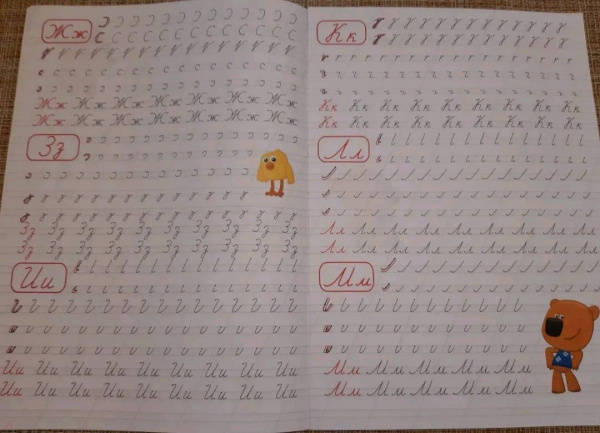 Жж
Жж Жж Жж Жж Жж Жж Жж
Жж Жж Жж Жж Жж Жж Жж
Зз
Зз Зз Зз Зз Зз Зз Зз Зз Зз
Зз Зз Зз Зз Зз Зз Зз Зз Зз
Ии
Ии Ии Ии Ии Ии Ии Ии Ии Ии
Ии Ии Ии Ии Ии Ии Ии Ии Ии
Кк
Кк Кк Кк Кк Кк Кк Кк Кк
Кк Кк Кк Кк Кк Кк Кк Кк
Лл
Лл Лл Лл Лл Лл Лл Лл Лл Лл
Лл Лл Лл Лл Лл Лл Лл Лл Лл
Мм
Мм Мм Мм Мм Мм
Мм Мм Мм Мм Мм